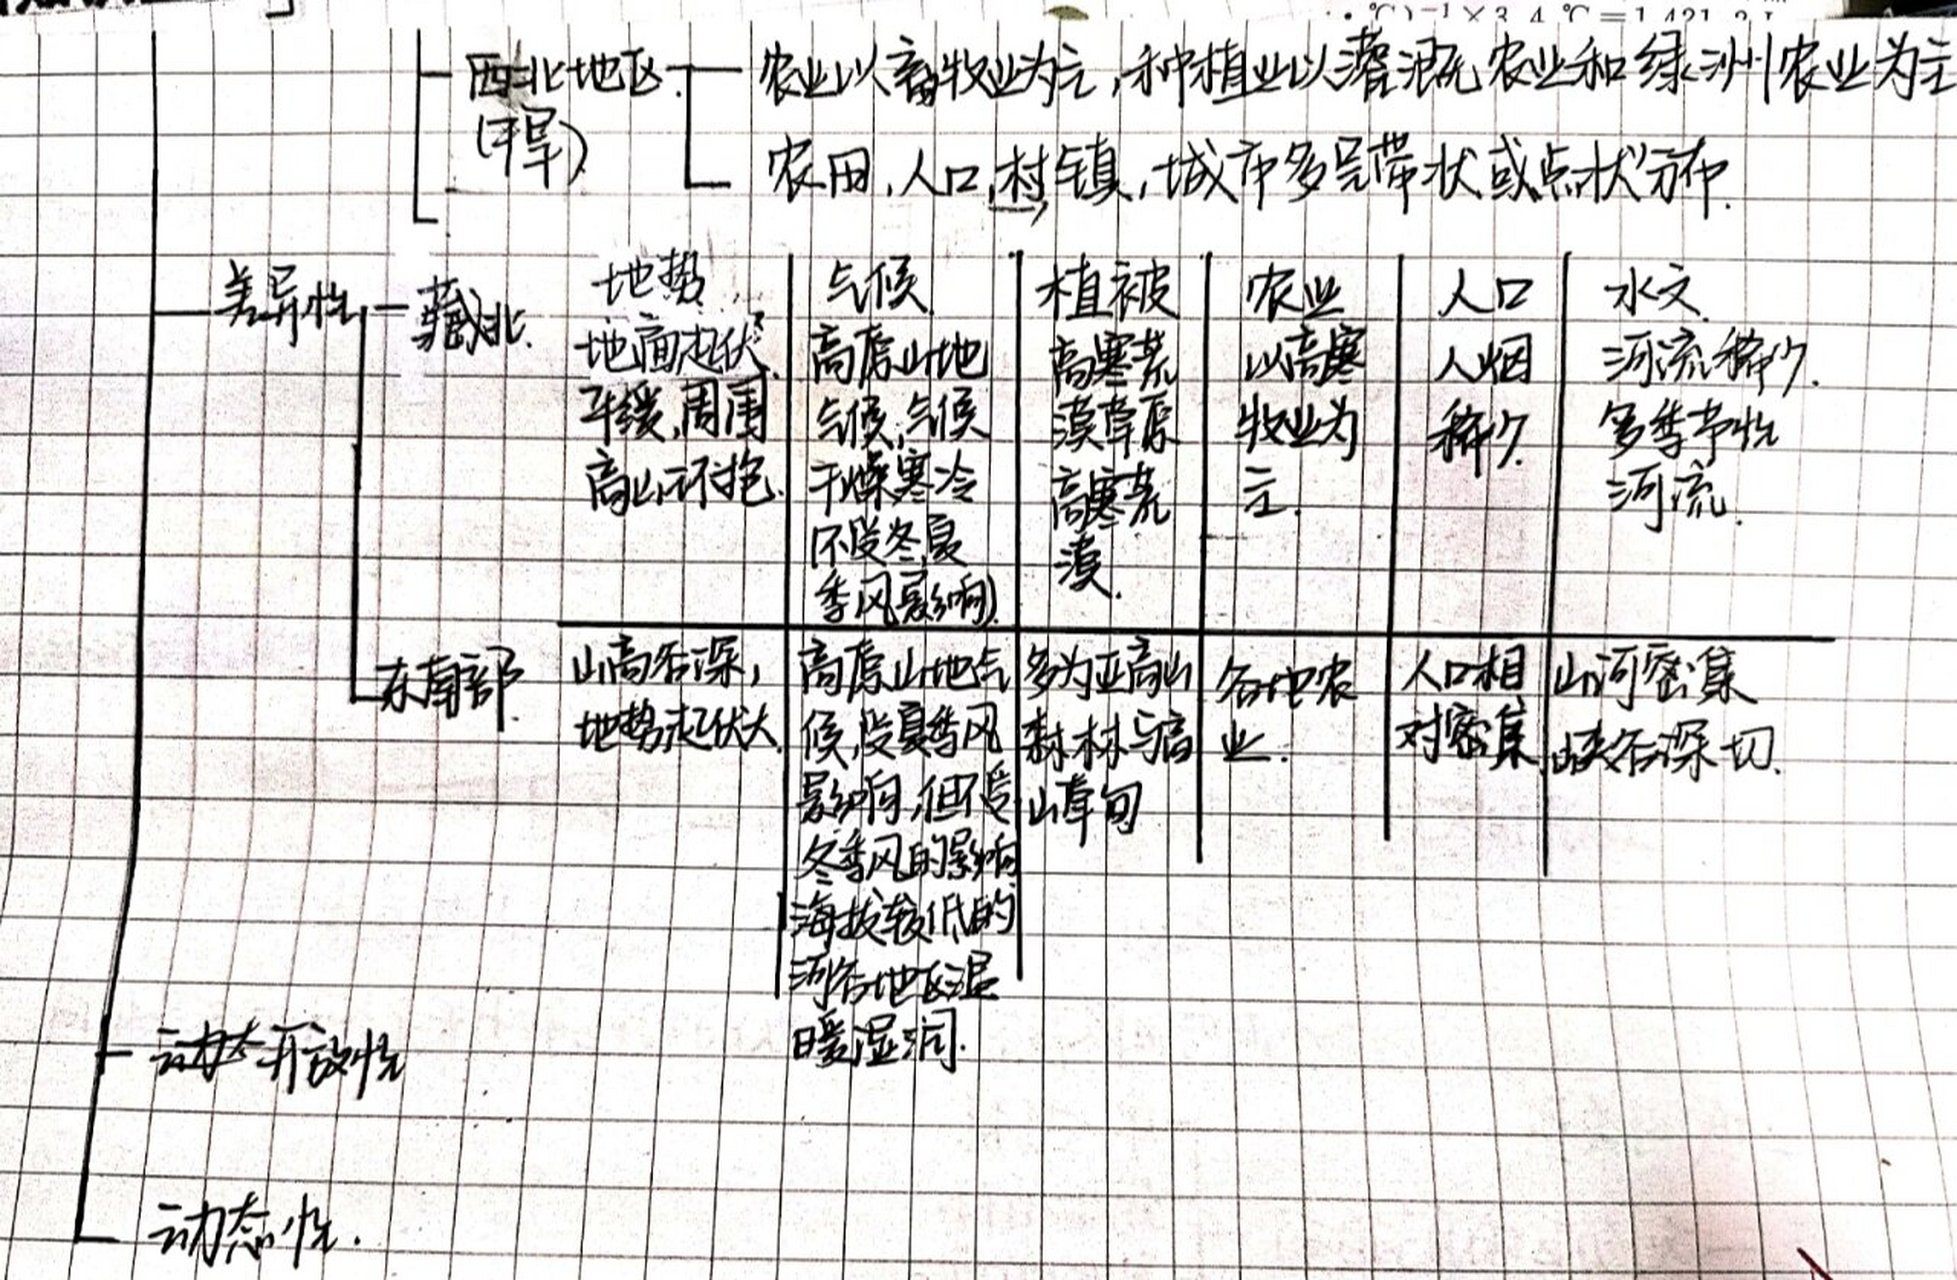 西北地区
(干旱)
农业以畜牧业为主,种植业以灌溉农业和绿洲农业为主
农田,人口,村镇,城市多呈带状或点状分布.
差异性
藏北.
地势
地面起伏
平缓,周围
高山环抱.
气候
高原山地
气候,气候
干燥寒冷
(不受冬夏
季风影响).
植被
高寒荒
漠草原
高寒荒
漠.
农业
以高寒
牧业为
主.
人口
人烟
稀少.
水文.
河流稀少.
多季节性
河流.
东南部.
山高谷深,
地势起伏大.
高原山地气
候,受夏季风
影响,但不受
冬季风的影响
海拔较低的
河谷地区温
暖湿润.
多为亚高山
森林与高
山草甸
谷地农
业.
人口相
对密集
山河密集
峡谷深切.
开放性
动态性.